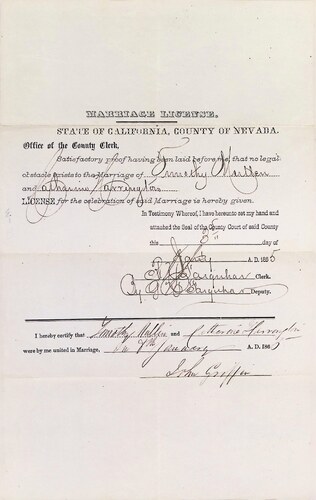 MARRIAGE LICENSE.
STATE OF CALIFORNIA, COUNTY OF NEVADA.
Office of the County Clerk,
Satisfactory proof having been laid before me, that no legal
obstacle exists to the Marriage of Timothy
and Catharine
LICENSE for the celebration of said Marriage is hereby given.
In Testimony Whereof, I have hereunto set my hand and
attached the Seal of the County Court of said County
this day of
A. D. 186
Farquhar Clerk.
By Farquhar Deputy.
I hereby certify that Timothy and
were by me united in Marriage, on 7th January A. D. 186
John Griffin